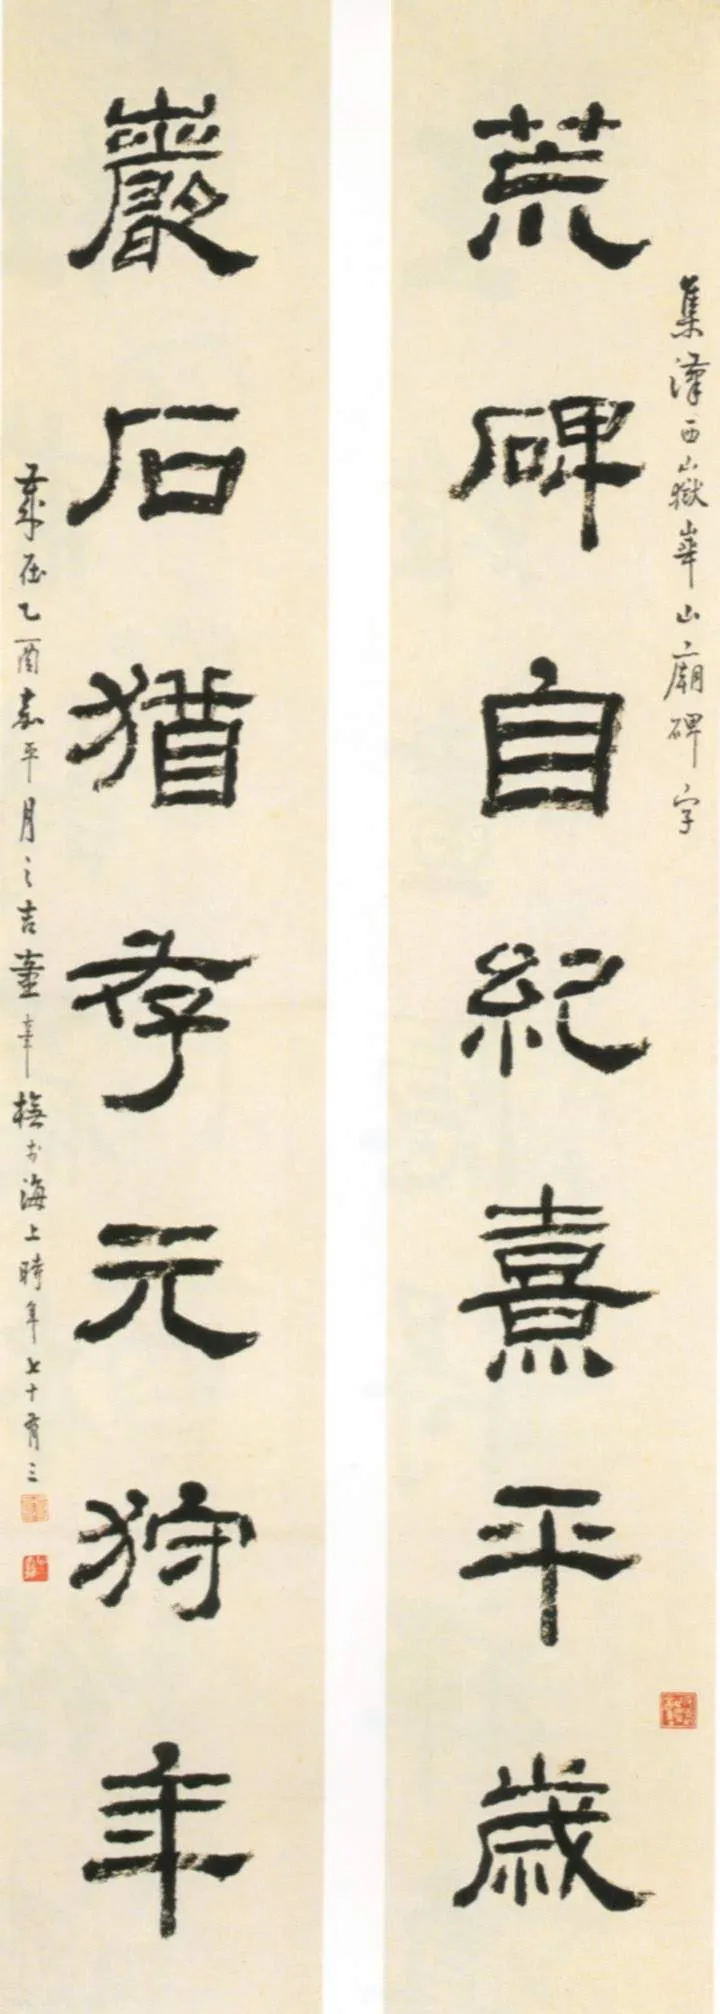 集漢西嶽華山廟碑字
荒碑自紀熹平歲
巖石猶存元狩年
歲在乙酉嘉平月之吉童大年橅於海上時年七十有三